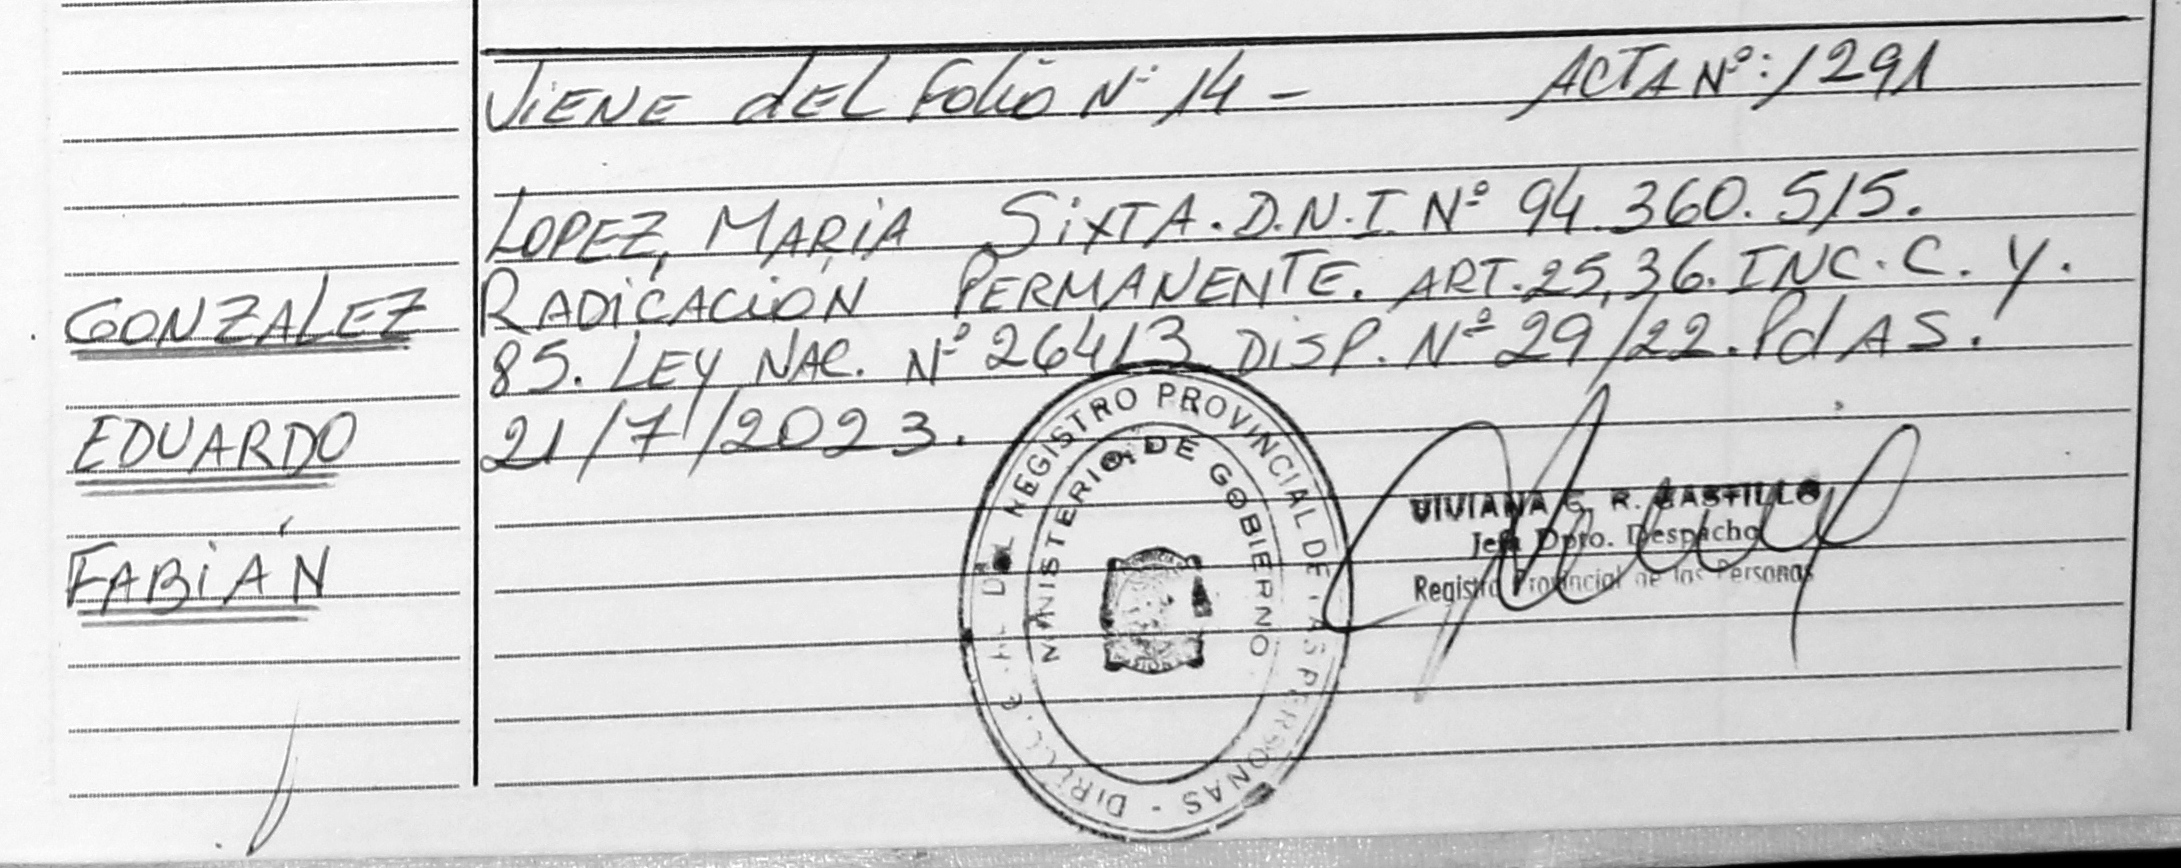 ViENE dEL Folio Nº 14 - ACTA Nº: 1291
LOPEZ, MARiA SiXTA. D.N.I. Nº 94.360.515.
RADiCACiON PERMANENTE. ART. 25, 36. INC. C. Y.
85. LEY NAC. Nº 26413 DiSP. Nº 29/22. PdAS.
21/7/2023.
GONZALEZ
EDUARDO
FABiÁN
REGISTRO PROVINCIAL DE LAS PERSONAS -
MINISTERIO DE GOBIERNO
VIVIANA G. R. CASTILLO
Jefa Dpto. Despacho
Registro Provincial de las Personas